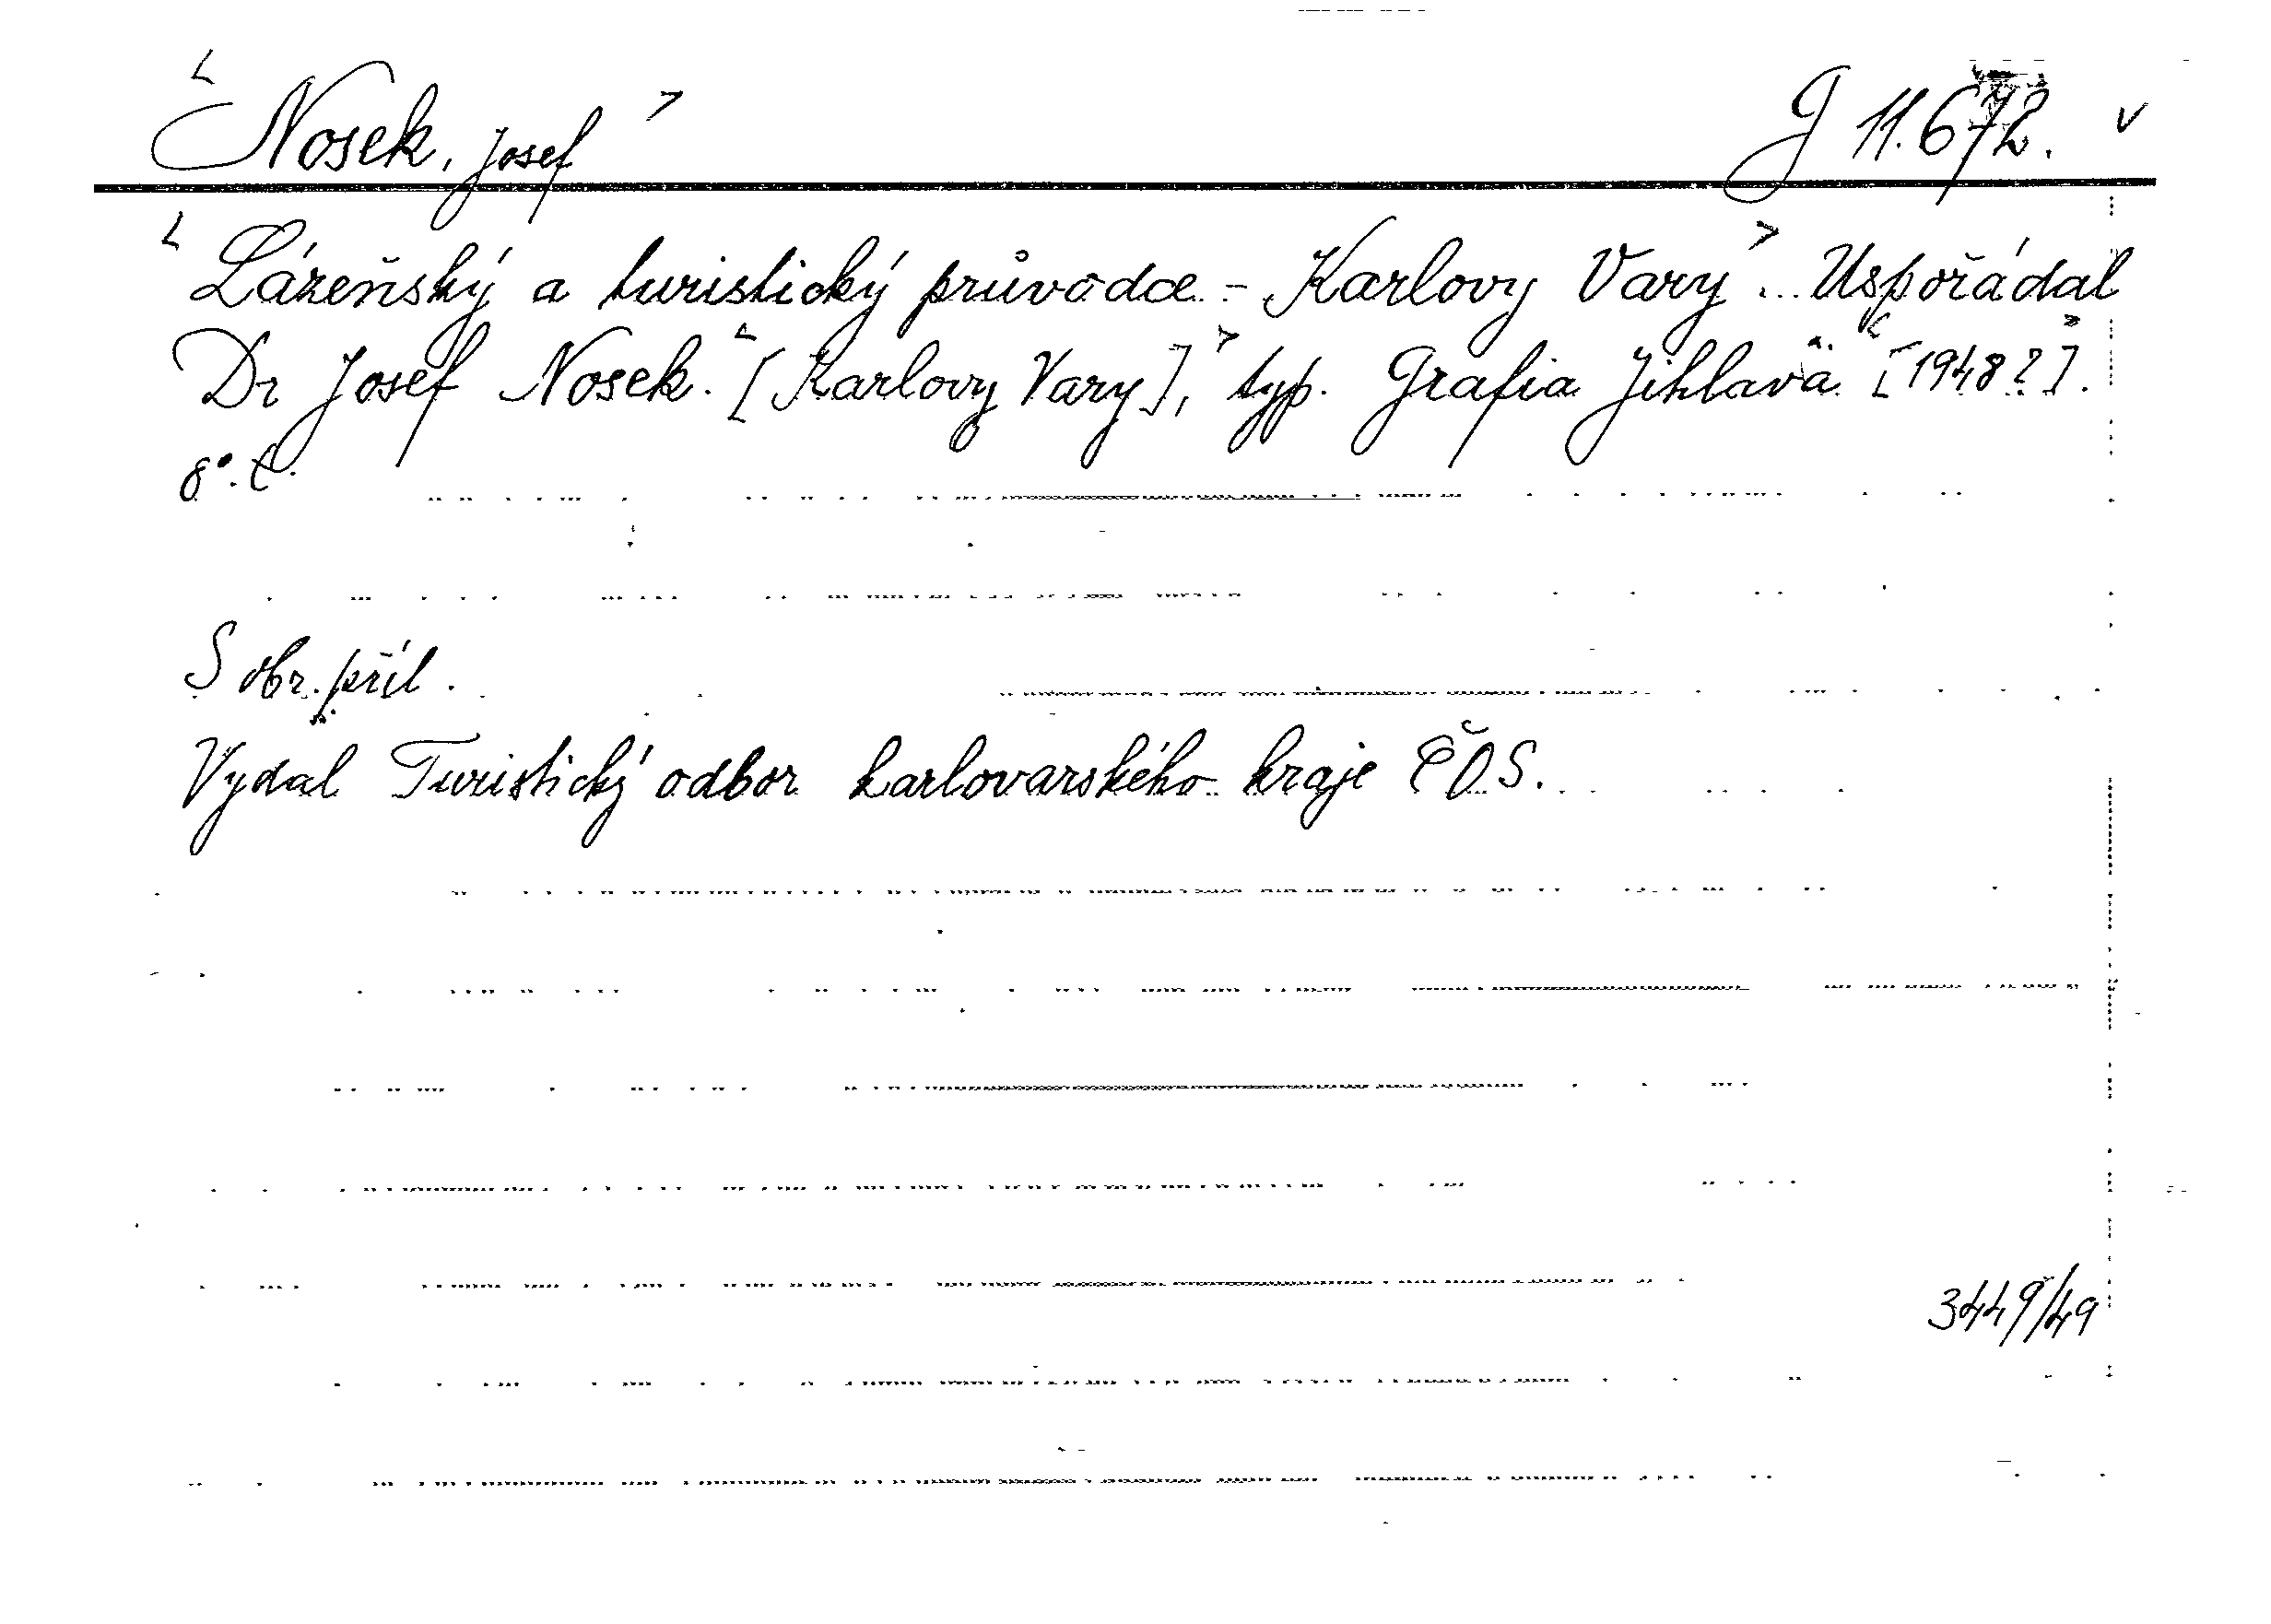 < Nosek, Josef > G 11.672. v
< Lázeňský a turistický průvodce - Karlovy Vary >. Uspořádal
Dr Josef Nosek. < [Karlovy Vary], > typ. Grafia Jihlava < [1948?] >.
8°. C.
S obr. příl.
Vydal Turistický odbor karlovarského kraje ČOS.
3449/49